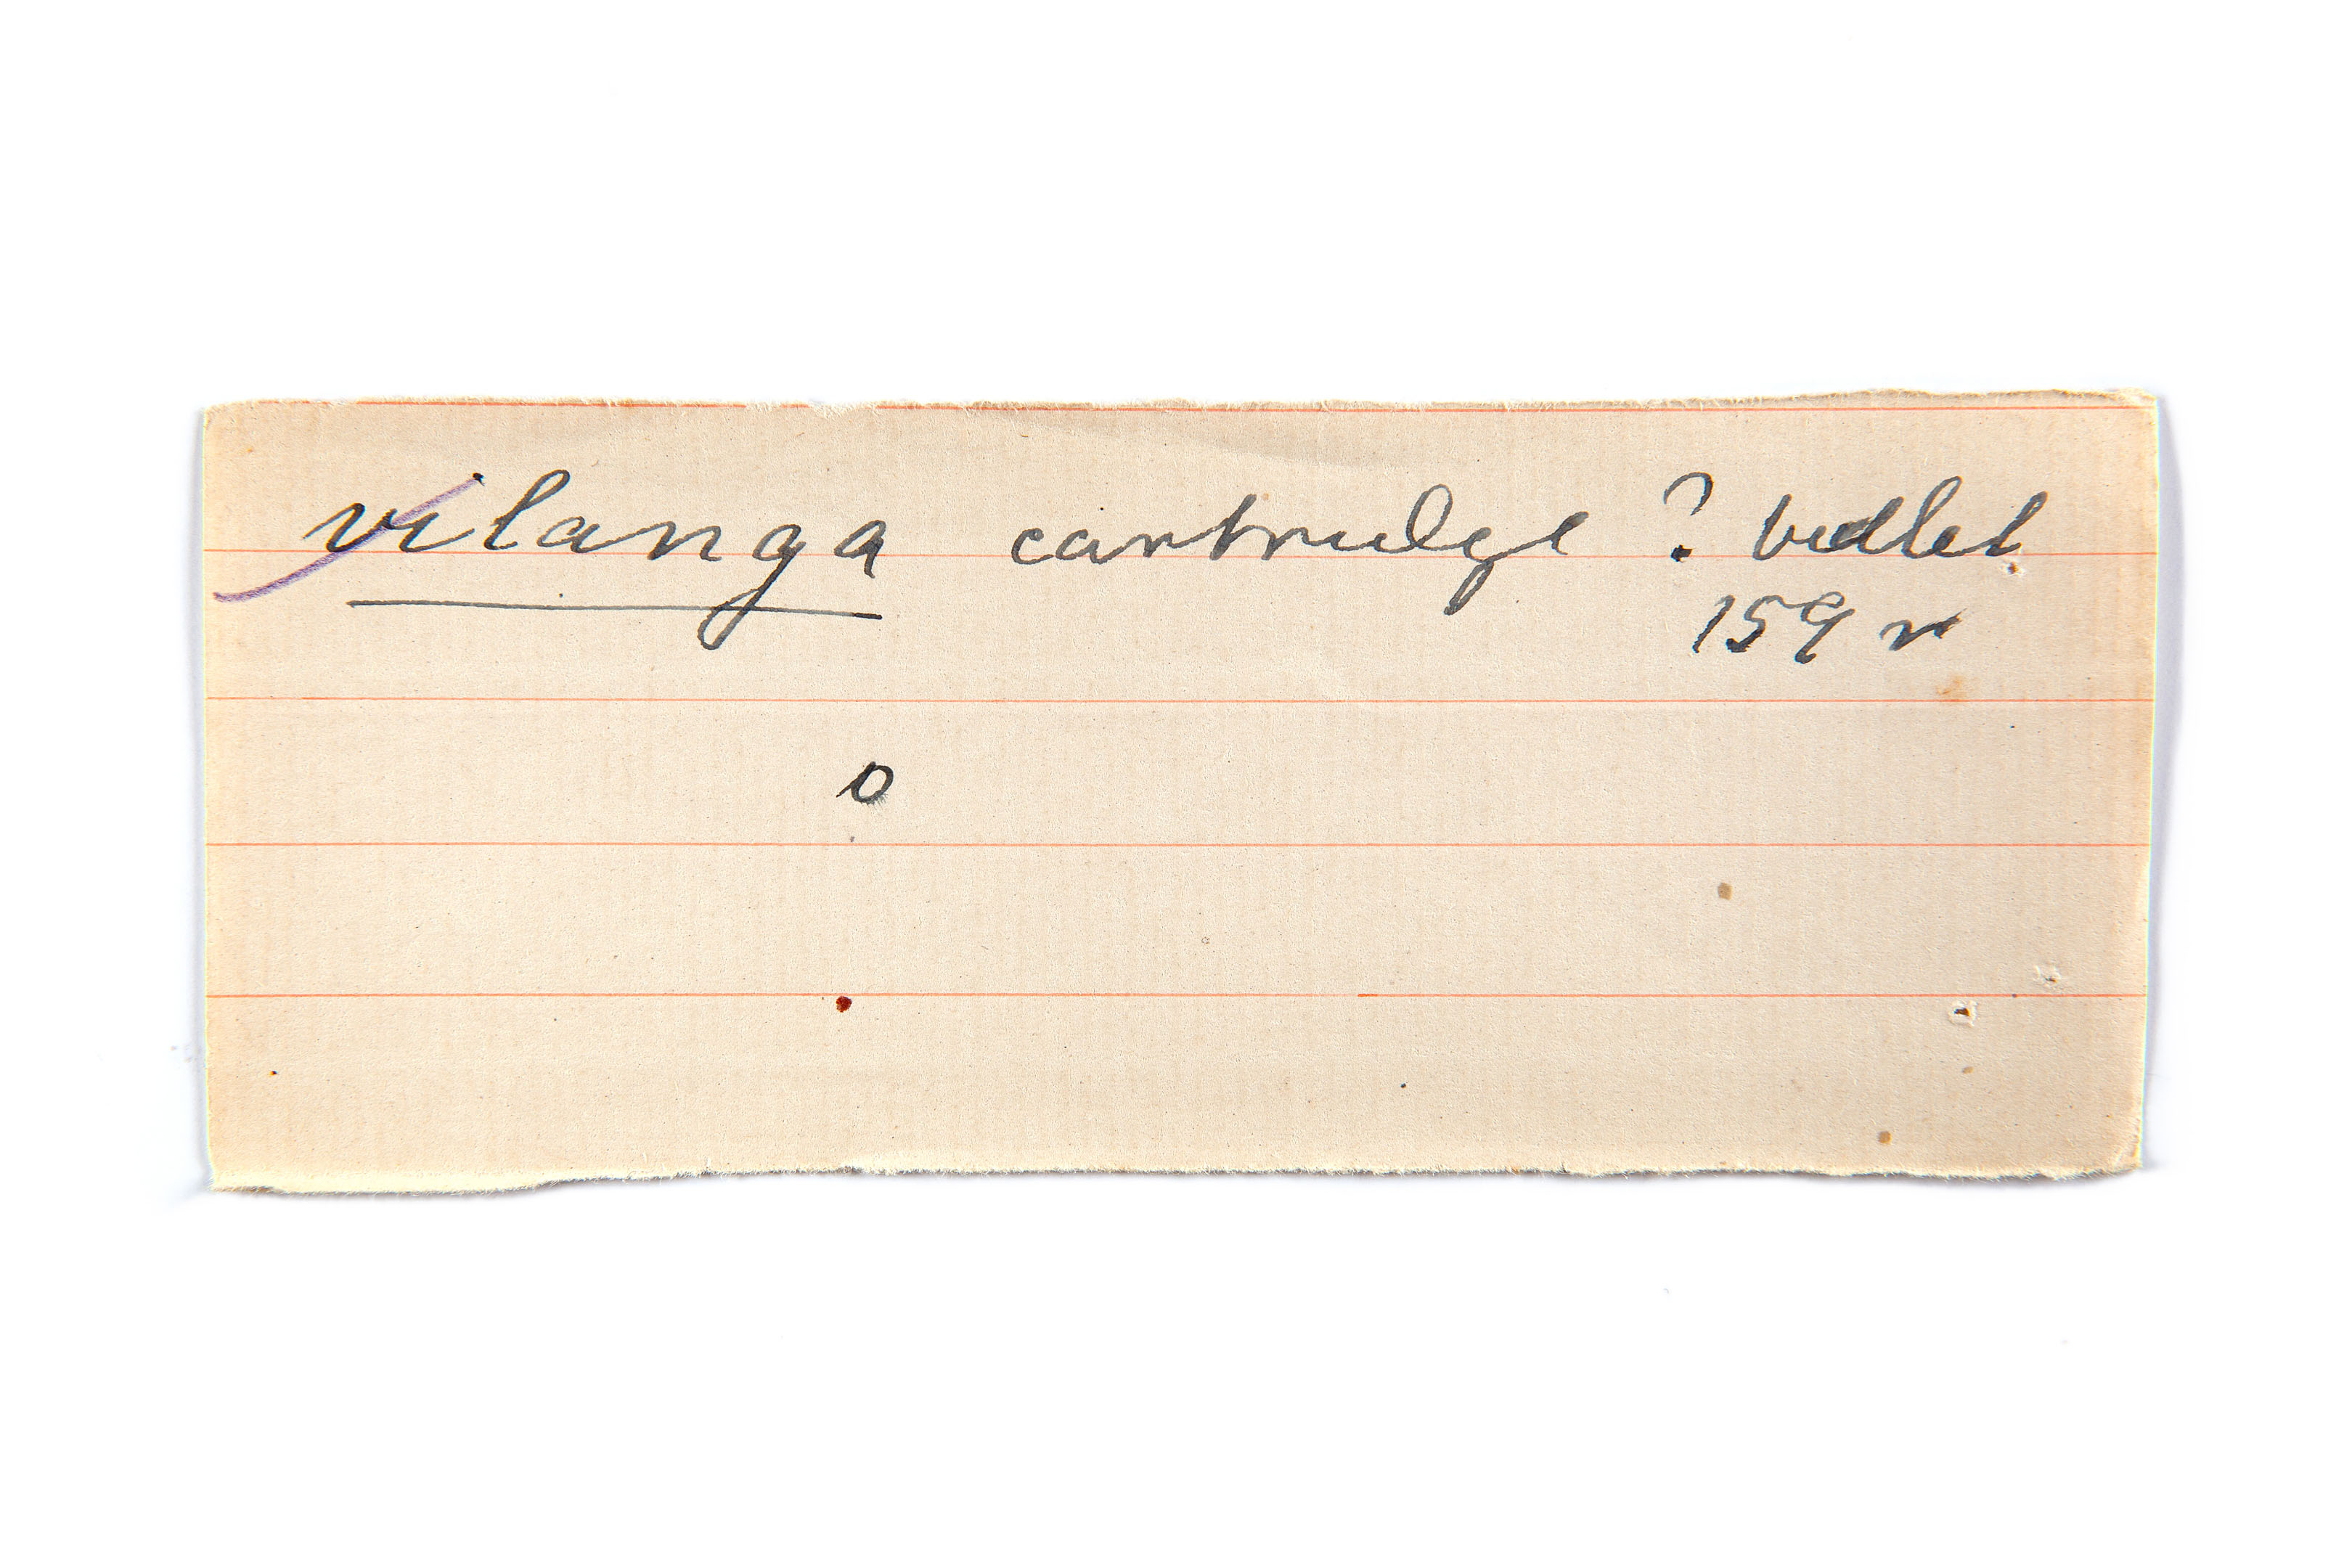 vilanga cartridge ? bullet
159 r
o